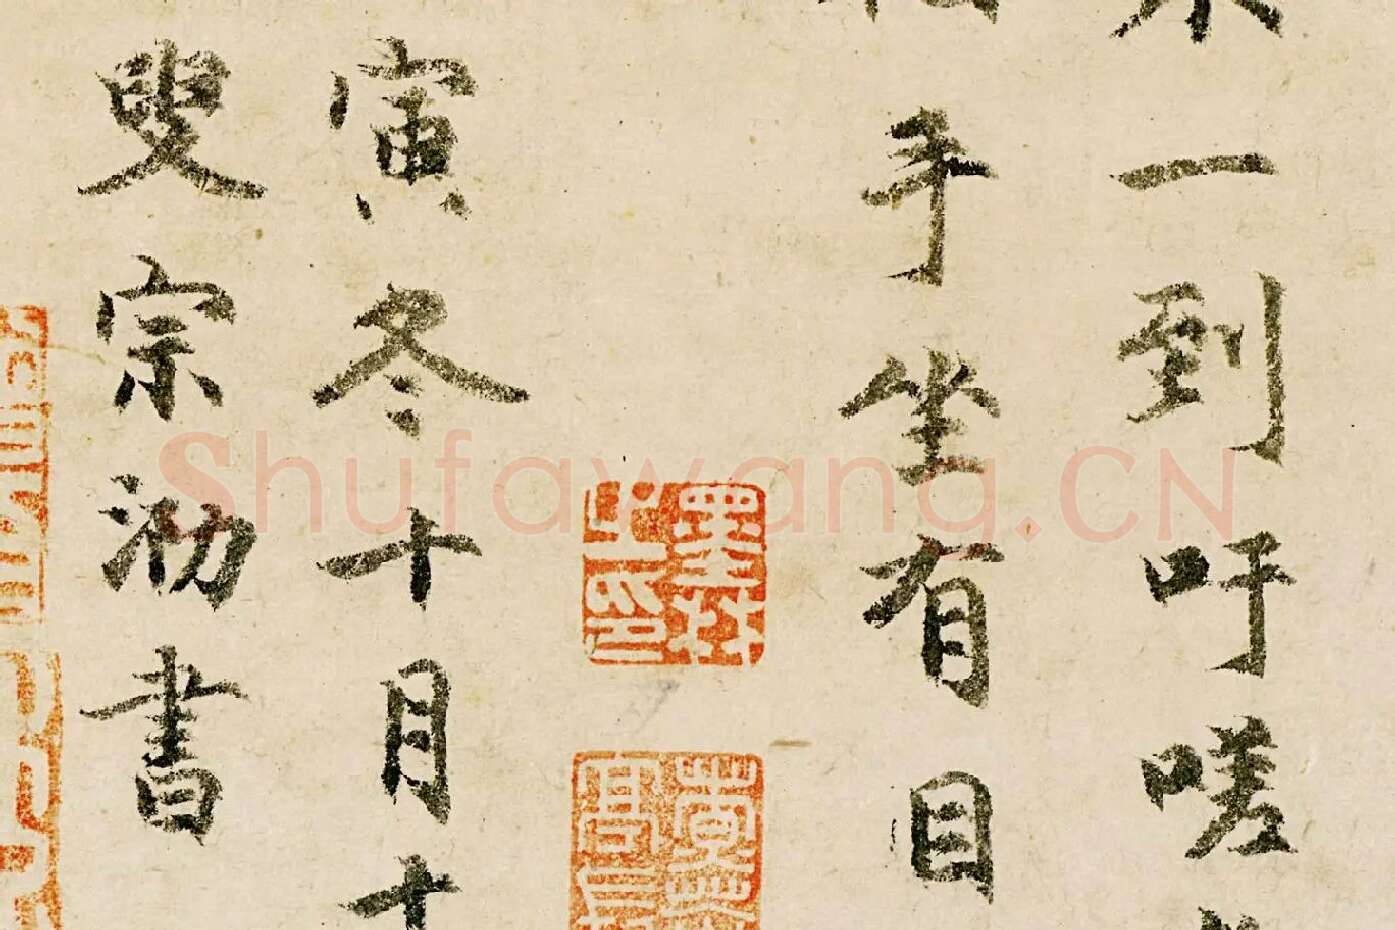 一到吁嗟
手坐有目
寅冬十月十
叟宗泐書
墨林
生印
Shufawang.CN